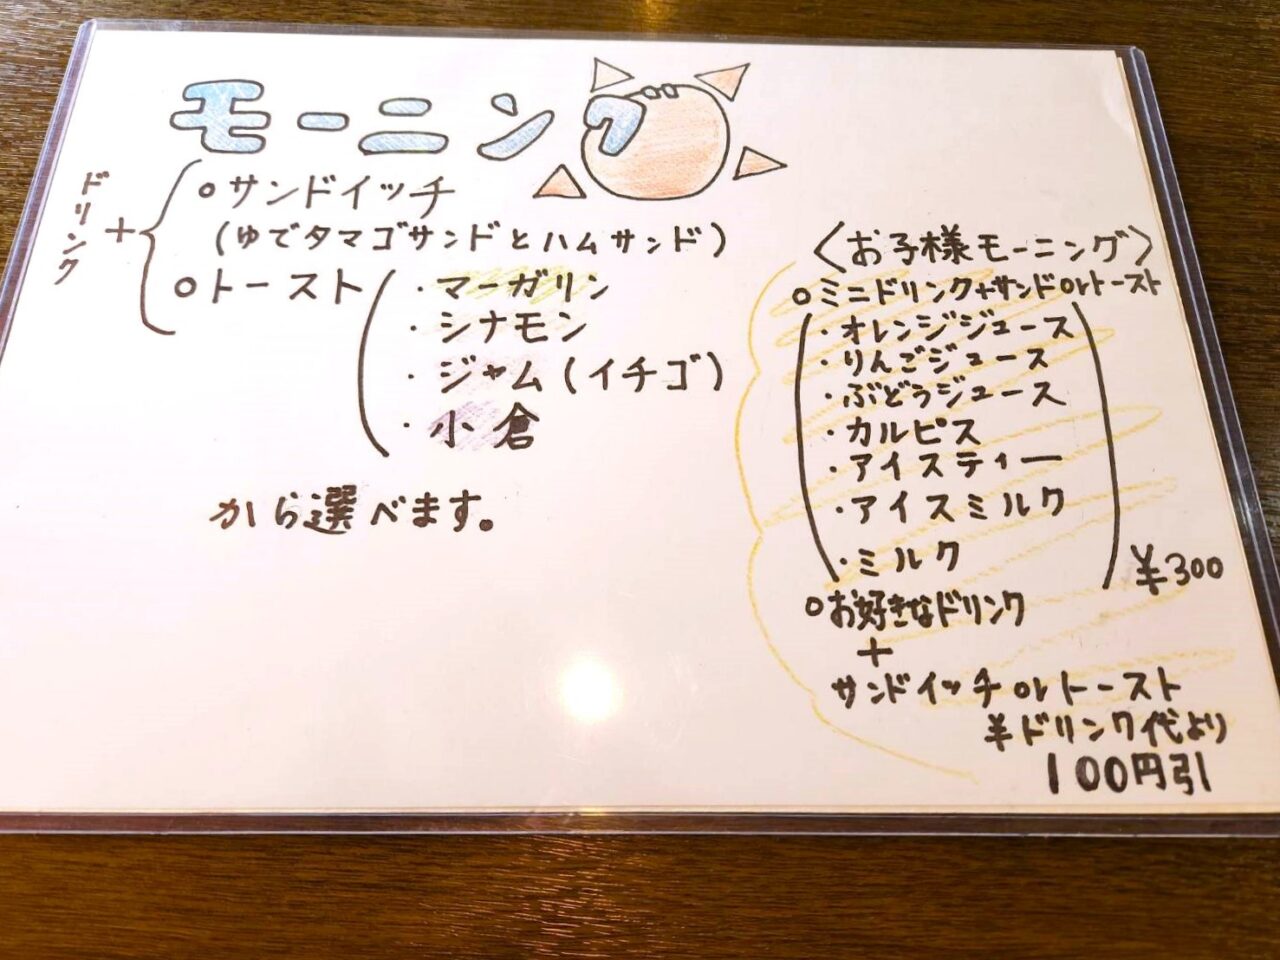 モーニング
ドリンク
+
○サンドイッチ
(ゆでタマゴサンドとハムサンド)
○トースト
・マーガリン
・シナモン
・ジャム(イチゴ)
・小倉
から選べます。
〈お子様モーニング〉
○ミニドリンク+サンドorトースト
・オレンジジュース
・りんごジュース
・ぶどうジュース
・カルピス
・アイスティー
・アイスミルク
・ミルク
¥300
○お好きなドリンク
+
サンドイッチorトースト
¥ドリンク代より
100円引